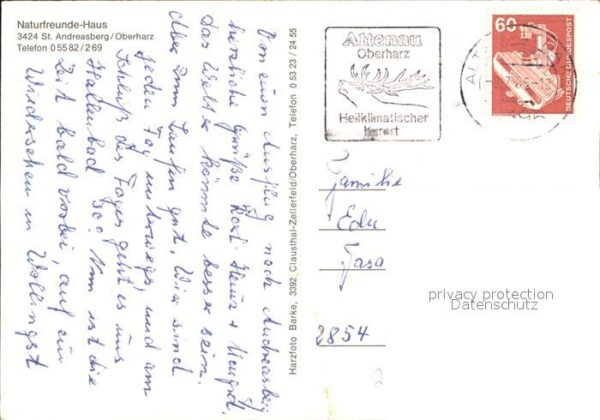 Naturfreunde-Haus
3424 St. Andreasberg/Oberharz
Telefon 0 55 82 / 2 69
Von einem Ausflug nach Andreasberg
herzliche Grüße Heinz +
Das Wetter könnte besser sein.
Aber zum Laufen gut. Wir sind
jeden Tag unterwegs, und am
Schluß des Tages geht es ins
Hallenbad 30° Nun ist die
Zeit bald vorbei, auf ein
Wiedersehen in
Harzfoto Barke, 3392 Clausthal-Zellerfeld/Oberharz, Telefon 0 53 23 / 24 55
Altenau
Oberharz
Heilklimatischer
Kurort
60
DEUTSCHE BUNDESPOST
Familie
Edu
2854
privacy protection
Datenschutz